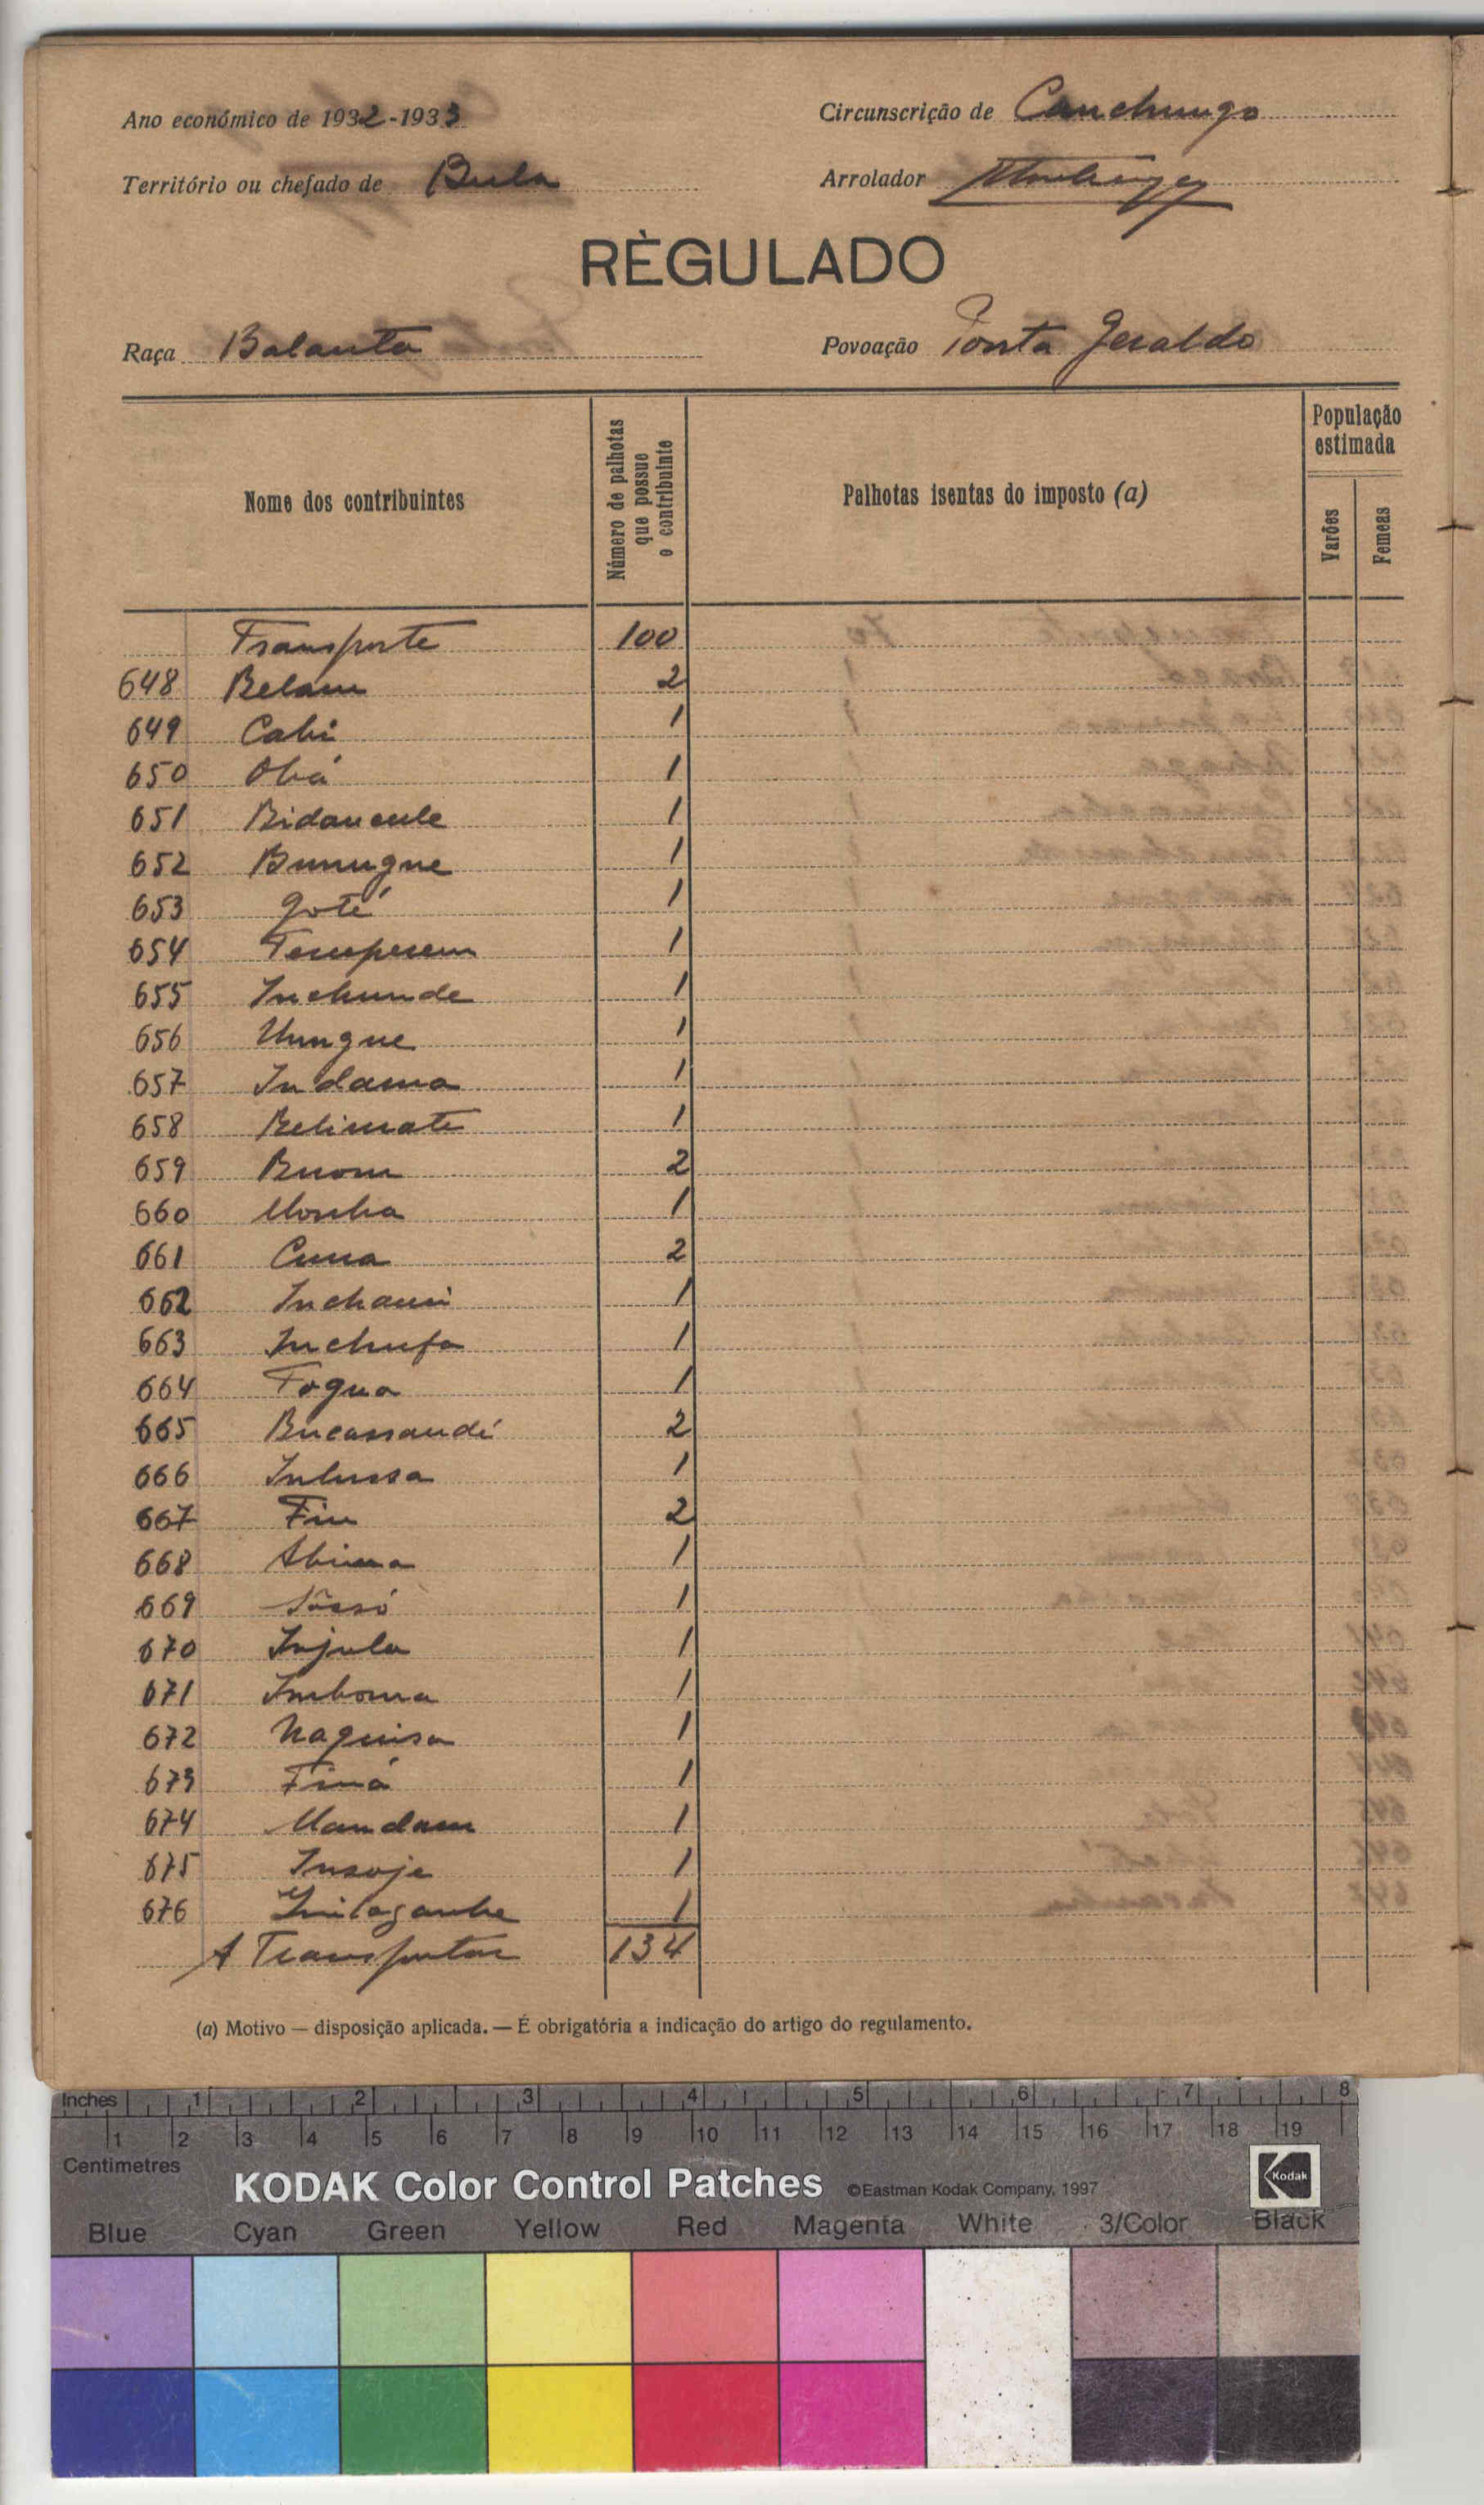 Ano económico de 1932-1933
Circunscrição de Canchungo
Território ou chefado de Bula
Arrolador
RÈGULADO
Raça Balanta
Povoação Ponta Geraldo
Nome dos contribuintes
Número de palhotas que possue o contribuinte
Palhotas isentas do imposto (a)
População estimada
Varões
Femeas
Transporte 100
648 Belam 2
649 Cabi 1
650 Obá 1
651 Bidancule 1
652 Bunugne 1
653 Goté 1
654 1
655 Inchunde 1
656 Ungue 1
657 Indama 1
658 Belimate 1
659 Buom 2
660 1
661 Cuna 2
662 Inchami 1
663 Inchufa 1
664 Fogna 1
665 Bucassandé 2
666 Inlussa 1
667 Fin 2
668 Abina 1
669 1
670 Injula 1
671 Imboma 1
672 Naquisa 1
673 Finá 1
674 Mandam 1
675 Insoje 1
676 1
A Transportar 134
(a) Motivo — disposição aplicada. — É obrigatória a indicação do artigo do regulamento.
Inches 1 2 3 4 5 6 7 8
1 2 3 4 5 6 7 8 9 10 11 12 13 14 15 16 17 18 19
Centimetres
KODAK Color Control Patches ©Eastman Kodak Company, 1997 Kodak
Blue Cyan Green Yellow Red Magenta White 3/Color Black